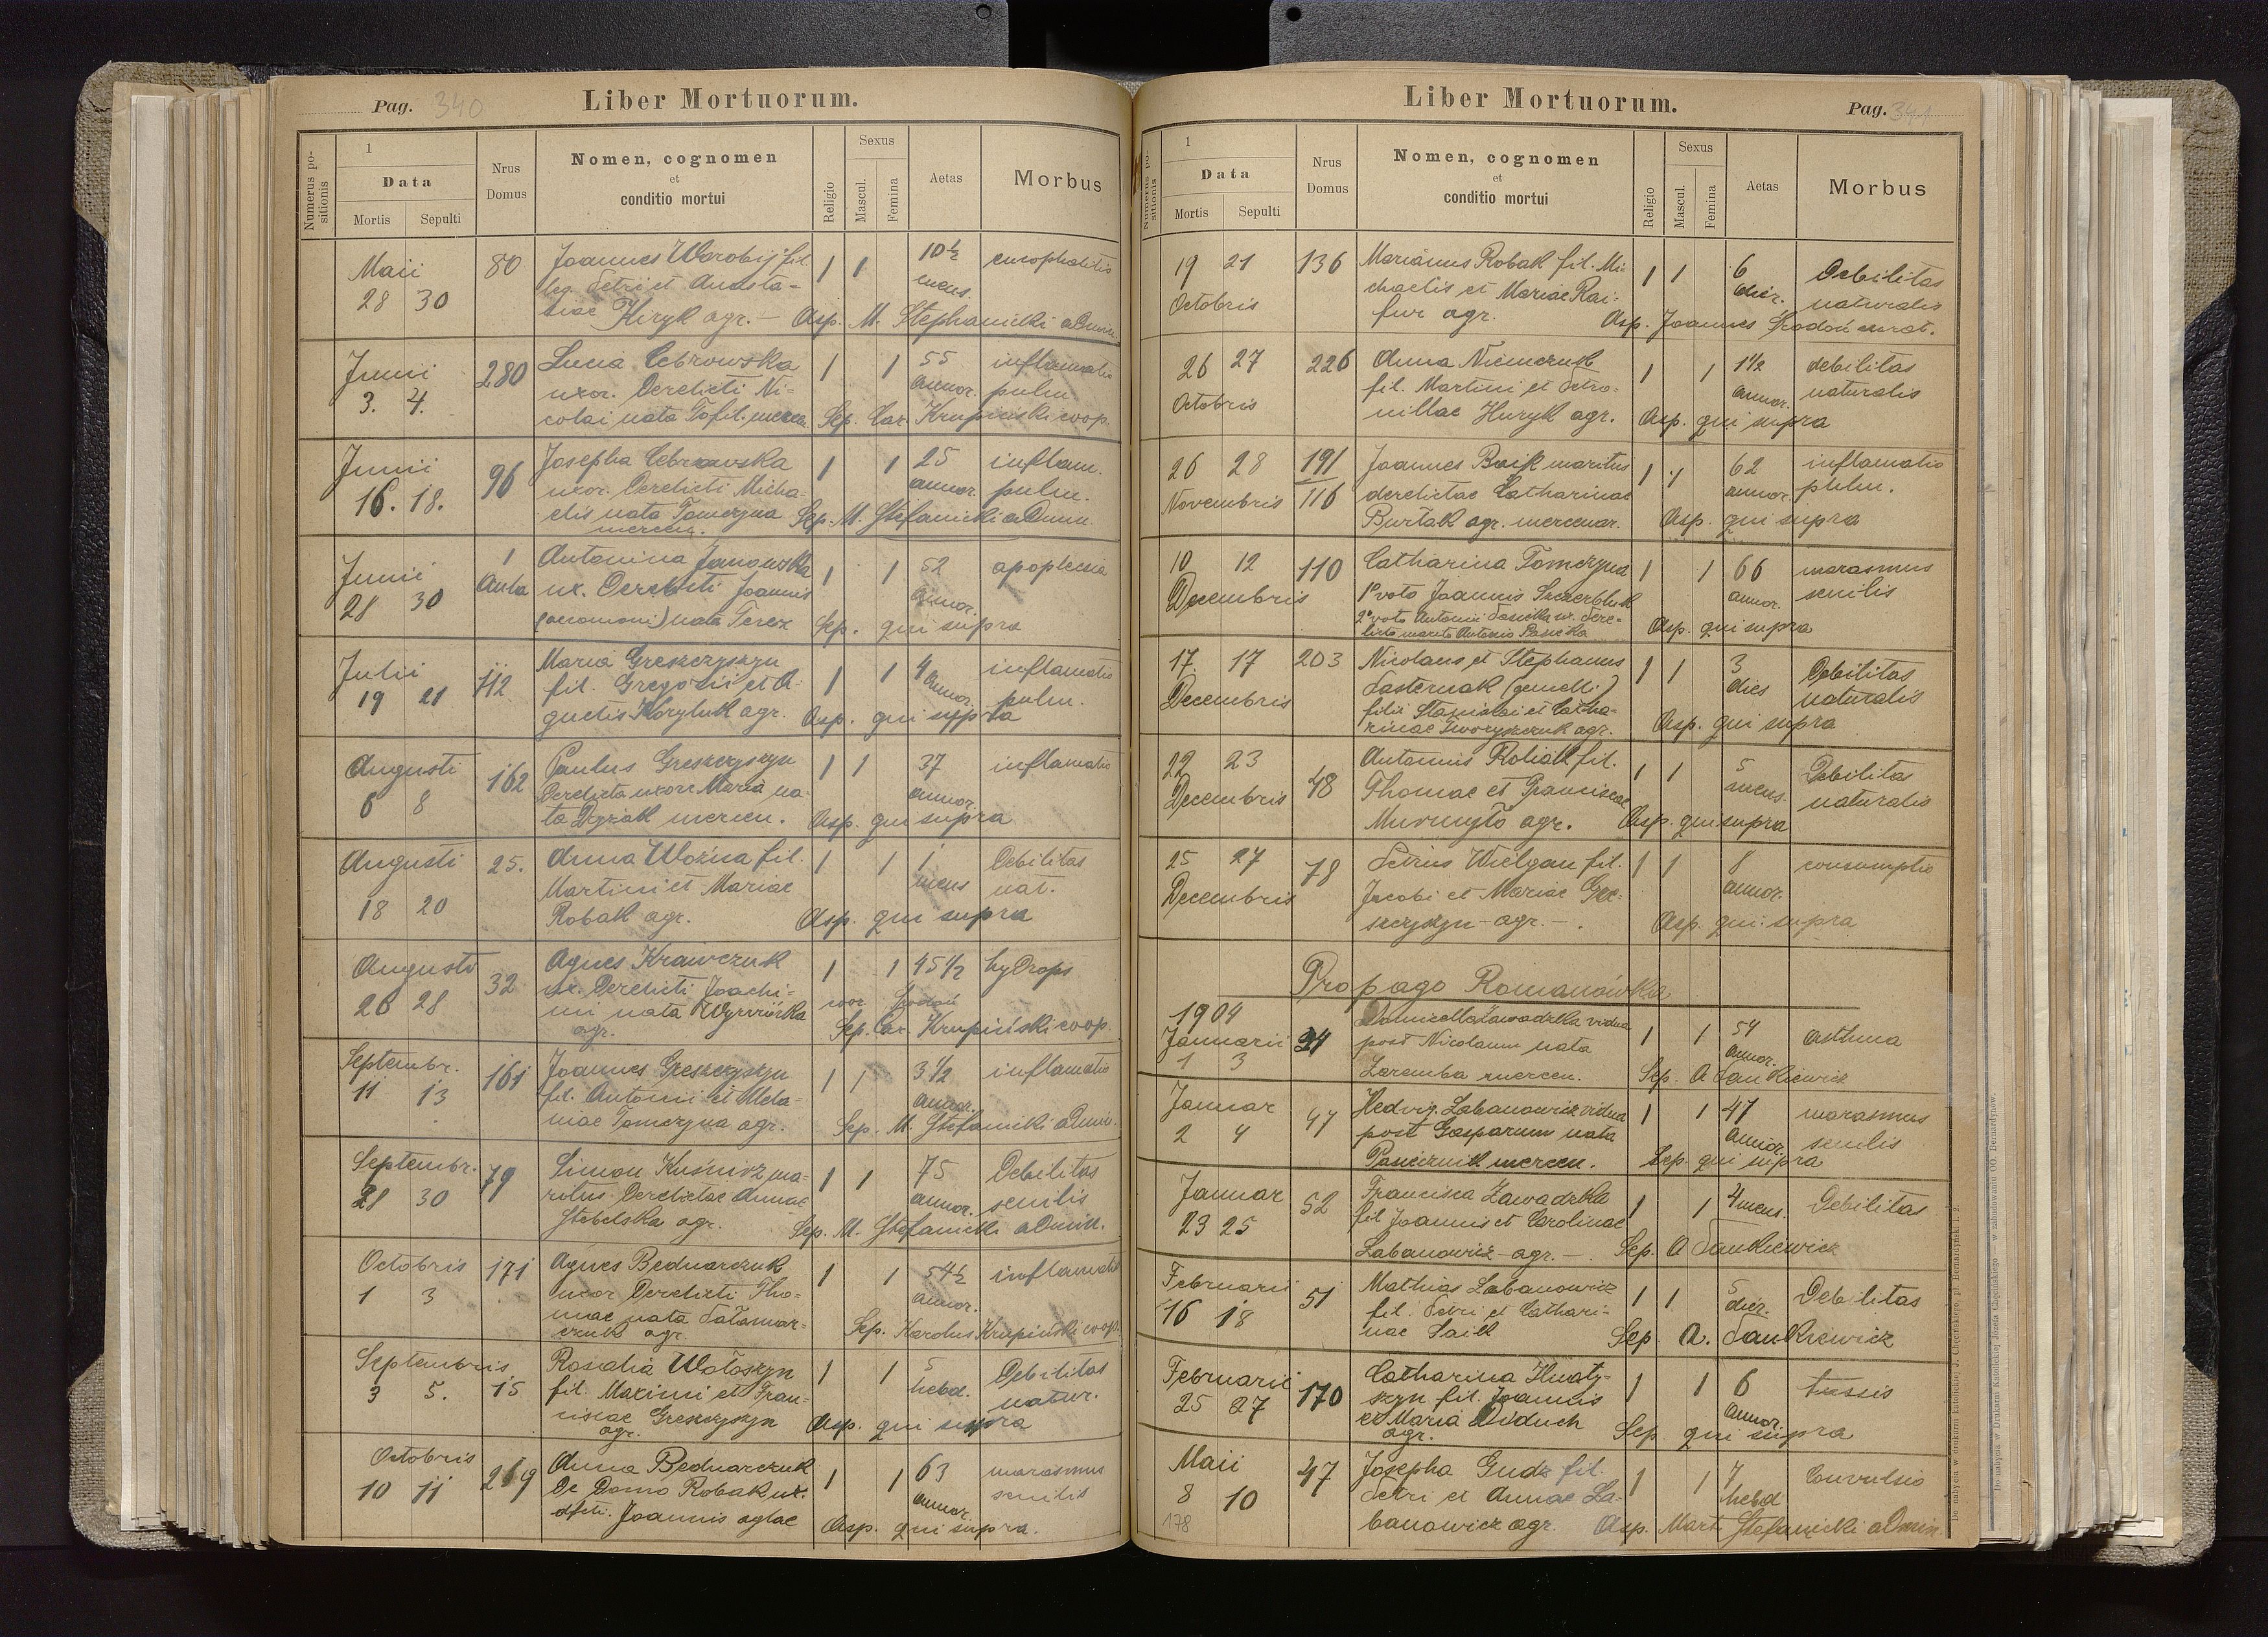 Pag. 340
Liber Mortuorum.
Numerus po-
sitionis
1
Data
Mortis Sepulti
Nrus
Domus
Nomen, cognomen
et
conditio mortui
Religio
Sexus
Mascul.
Femina
Aetas
Morbus
Maii
28 30
80
Joannes Worobij fil.
leg. Petri et Anasta-
siae Hryk agr. —
1 1
10½
mens.
Asp. M. Stephanicki admin.
Junii
3. 4.
280
Luca Cebrowska
uxor. derelicti Ni-
colai nata Tofil. mercen.
1 1
55
annor.
inflamatio
pulm.
Sep. Car. Krupinski coop.
Junii
16. 18.
96
Josepha Cebrowska
uxor. derelicti Micha-
elis nata Tomczyna
mercen.
1 1
25
annor.
inflam.
pulm.
Sep. M. Stefanicki admin.
Junii
28 30
1
Aula
Antonina Janowska
ux. derelicti Joannis
(oeconomi) nata Terez
1 1
52
annor.
apoplexia
Sep. qui supra
Julii
19 21
112
Maria Greszczyszyn
fil. Gregorii et A-
gnetis Koryluk agr.
1 1
4
annor.
inflamatio
pulm.
Asp. qui supra
Augusti
6 8
162
Paulus Greszczyszyn
derelicta uxore Maria na-
ta mercen.
1 1
37
annor.
inflamatio
Asp. qui supra
Augusti
18 20
25.
Anna Woźna fil.
Martini et Mariae
Robak agr.
1 1
1
mens
Debilitas
nat.
Asp. qui supra
Augusti
26 28
32
Agnes Krawczuk
ux. derelicti Joachi-
mi nata Wyrwiórka
agr.
1 1
45½
hydrops
Sep. Car. Krupiński coop.
Septembr.
11 13
161
Joannes Greszczyszyn
fil. Antonii et Mela-
niae Tomczyna agr.
1 1
3½
annor.
inflamatio
Sep. M. Stefanicki admin.
Septembr.
28 30
79
Simon Kuśnirz ma-
ritus derelictae Annae
Stebelska agr.
1 1
75
annor.
Debilitas
senilis
Sep. M. Stefanicki admin.
Octobris
1 3
171
Agnes Bednarczuk
uxor derelicti Tho-
mae nata Pałamar-
czuk agr.
1 1
54½
annor.
inflamatio
Sep. Karolus Krupiński coop.
Septembris
3 5.
15
Rosalia Wołoszyn
fil. Maximi et Fran-
ciscae Greszczyszyn
agr.
1 1
5
hebd.
Debilitas
natur.
Asp. qui supra
Octobris
10 11
219
Anna Bednarczuk
de domo Robak ux.
Joannis
1 1
63
annor.
marasmus
senilis
Asp. qui supra.
Liber Mortuorum.
Pag. 341
Numerus po-
sitionis
1
Data
Mortis Sepulti
Nrus
Domus
Nomen, cognomen
et
conditio mortui
Religio
Sexus
Mascul.
Femina
Aetas
Morbus
19 21
Octobris
136
Marianus Robak fil. Mi-
chaelis et Mariae Rai-
fur agr.
1 1
6
dier.
Debilitas
naturalis
Asp. Joannes Srodoń curat.
26 27
Octobris
226
Anna Niemczuk
fil. Martini et Petro-
nillae Huryk agr.
1 1
1½
annor.
debilitas
naturalis
Asp. qui supra
26 28
Novembris
191
116
Joannes Baik maritus
derelictae Catharinae
Burtak agr. mercenar.
1 1
62
annor.
inflamatio
pulm.
Asp. qui supra
10 12
Decembris
110
Catharina Tomczyna
1º voto Joannis Szczerbluk
2º voto Antonii Pasieka ux. dere-
licto marito Antonio Pasieka
1 1
66
annor.
marasmus
senilis
Asp. qui supra
17. 17
Decembris
203
Nicolaus et Stephanus
Pasternak (gemelli)
filii Stanislai et Catha-
rinae Tworyszczuk agr.
1 1
3
dies
Debilitas
naturalis
Asp. qui supra
22 23
Decembris
48
Antonius Roliak fil.
Thomae et Franciscae
Murmyło agr.
1 1
5
mens.
Debilitas
naturalis
Asp. qui supra
25 27
Decembris
78
Petrus Wielgan fil.
Jacobi et Mariae Gre-
szczyszyn — agr. —.
1 1
8
annor.
consumptio
Asp. qui supra
Propago Romanówka
1904
Januarii
1 3
34
Zawadzka vidua
post Nicolaum nata
Zaremba mercen.
1 1
54
annor.
asthma
Sep. A Sankiewicz
Januar
2 4
47
Hedvig. Labanowicz vidua
post Gasparum nata
Pasiecznik mercen.
1 1
47
annor.
marasmus
senilis
Sep. qui supra
Januar
23 25
52
Francisca Zawadzka
fil Joannis et Carolinae
Labanowicz — agr. —.
1 1
4 mens.
Debilitas
Sep. A Sankiewicz
Februarii
16 18
51
Mathias Labanowicz
fil. Petri et Cathari-
nae Saik
1 1
5
dier.
Debilitas
Sep. A. Sankiewicz
Februarii
25 27
170
Catharina Hnaty-
szyn fil. Joannis
et Maria Diduch
agr.
1 1
6
annor.
tussis
Sep qui supra
Maii
8 10
178
47
Josepha Gudz fil.
Petri et Annae La-
banowicz agr.
1 1
7
hebd
Convulsio
Asp. Mart. Stefanicki admin.